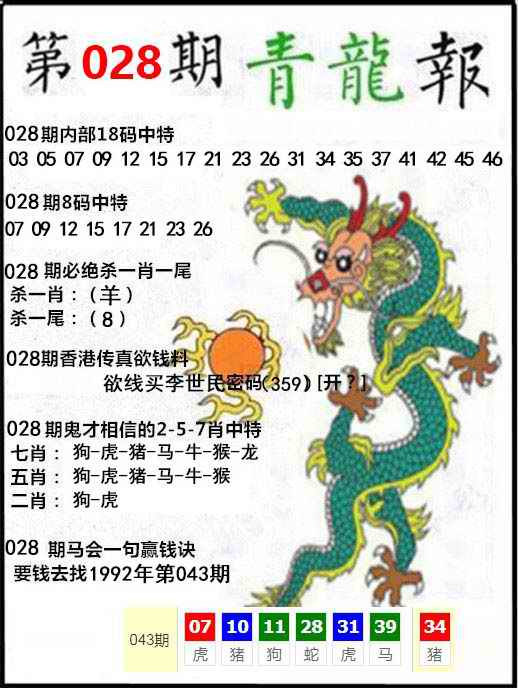 第028期青龍報
028期内部18码中特
03 05 07 09 12 15 17 21 23 26 31 34 35 37 41 42 45 46
028期8码中特
07 09 12 15 17 21 23 26
028 期必绝杀一肖一尾
杀一肖：(羊)
杀一尾：(8)
028期香港传真欲钱料
欲线买李世民密码(359)[开?]
028期鬼才相信的2-5-7肖中特
七肖：狗-虎-猪-马-牛-猴-龙
五肖：狗-虎-猪-马-牛-猴
二肖：狗-虎
028 期马会一句赢钱诀
要钱去找1992年第043期
043期 07 10 11 28 31 39 34
虎 猪 狗 蛇 虎 马 猪